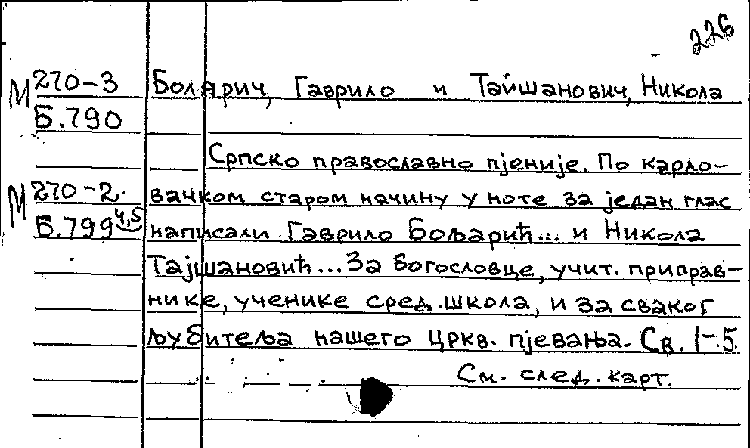 226
М 270-3 Болярич, Гаврило и Тайшанович, Никола
Б.790
Српско православно пјеније. По карло-
М 270-2 вачком старом начину у ноте за један глас
Б.799 4,5 написали Гаврило Бољарић... и Никола
Тајшановић... За богословце, учит. приправ-
нике, ученике сред. школа, и за сваког
љубитеља нашего цркв. пјевања. Св. 1-5
См. след. карт.